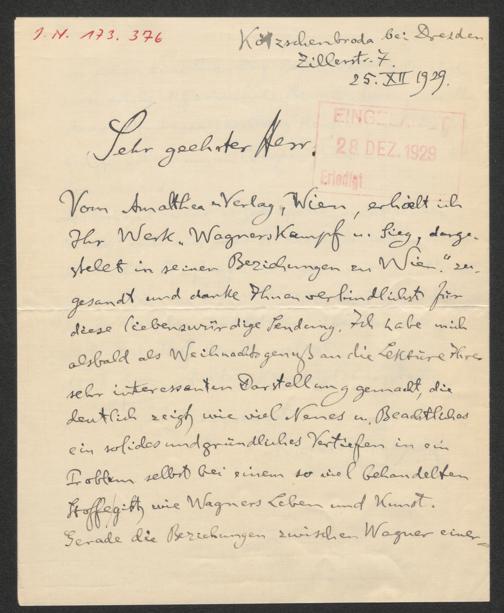 I. N. 173.376
Kötzschenbroda bei Dresden
Zillerstr. 7.
25. XII 1929.
EINGELANGT
28 DEZ. 1929
Erledigt
Sehr geehrter Herr.
Vom Amalthea-Verlag, Wien, erhielt ich
Ihr Werk „Wagners Kampf u. Sieg, darge-
stellt in seinen Beziehungen zu Wien." zu-
gesandt und danke Ihnen verbindlichst für
diese liebenswürdige Sendung. Ich habe mich
alsbald als Weihnachtsgenuß an die Lektüre Ihrer
sehr interessanten Darstellung gemacht, die
deutlich zeigt wie viel Neues u. Beachtliches
ein solides und gründliches Vertiefen in ein
Problem selbst bei einem so viel behandelten
Stoffe gibt, wie Wagners Leben und Kunst.
Gerade die Beziehungen zwischen Wagner einer-